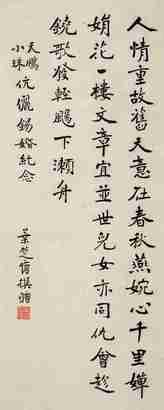 人情重故舊天意在春秋燕婉心千里嬋
娟花一樓文章宜並世兒女亦同仇曾趁
鐃歌發輕颺下瀨舟
天
小珠
伉儷錫婚紀念
撰